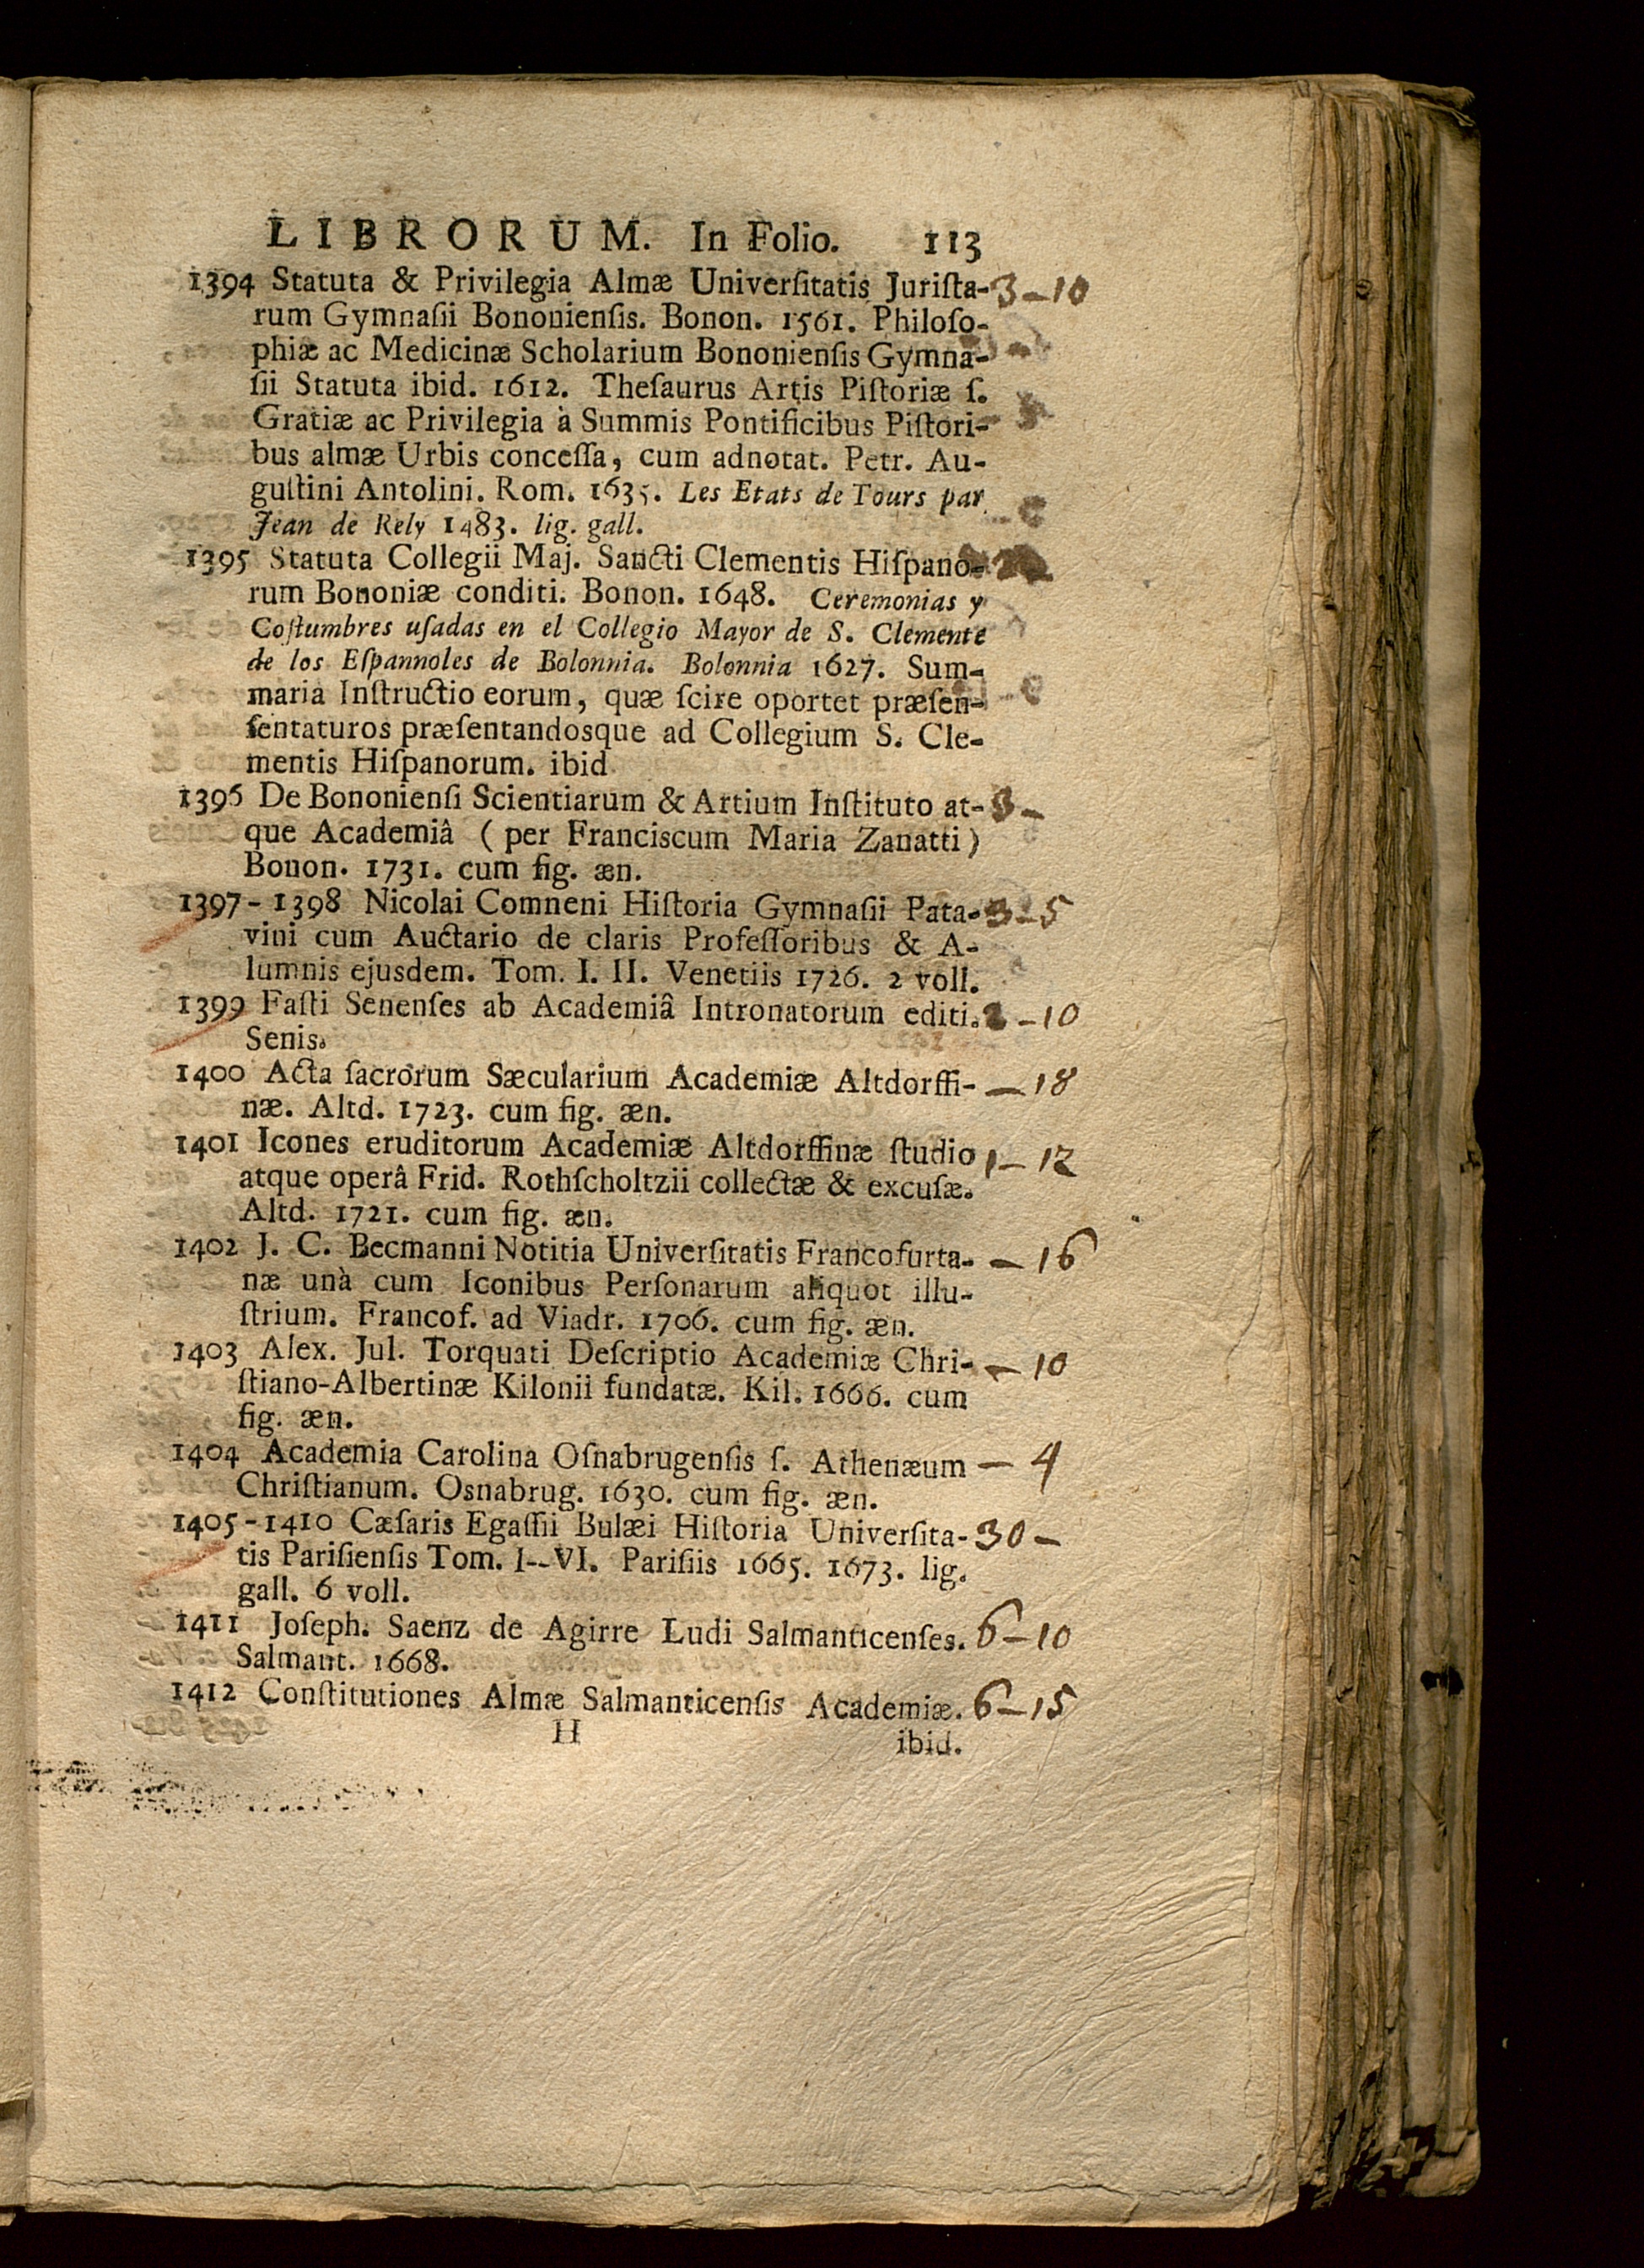 LIBRORUM. In Folio. 113
1394 Statuta & Privilegia Almæ Univerſitatis Juriſta- 3-10
rum Gymnaſii Bononienſis. Bonon. 1561. Philoſo-
phiæ ac Medicinæ Scholarium Bononienſis Gymna-
ſii Statuta ibid. 1612. Theſaurus Artis Piſtoriæ ſ.
Gratiæ ac Privilegia à Summis Pontificibus Piſtori-
bus almæ Urbis conceſſa, cum adnotat. Petr. Au-
guſtini Antolini. Rom. 1635. Les Etats de Tours par
Jean de Rely 1483. lig. gall.
1395 Statuta Collegii Maj. Sancti Clementis Hiſpano-
rum Bononiæ conditi. Bonon. 1648. Ceremonias y
Coſtumbres uſadas en el Collegio Mayor de S. Clemente
de los Eſpannoles de Bolonnia. Bolonnia 1627. Sum-
maria Inſtructio eorum, quæ ſcire oportet præſen-
ſentaturos præſentandosque ad Collegium S. Cle-
mentis Hiſpanorum. ibid
1396 De Bononienſi Scientiarum & Artium Inſtituto at- 3-
que Academiâ (per Franciscum Maria Zanatti)
Bonon. 1731. cum fig. æn.
1397-1398 Nicolai Comneni Hiſtoria Gymnaſii Pata- 3-5
vini cum Auctario de claris Profeſſoribus & A-
lumnis ejusdem. Tom. I. II. Venetiis 1726. 2 voll.
1399 Faſti Senenſes ab Academiâ Intronatorum editi. 2-10
Senis.
1400 Acta ſacrorum Sæcularium Academiæ Altdorffi- -18
næ. Altd. 1723. cum fig. æn.
1401 Icones eruditorum Academiæ Altdorffinæ ſtudio 1-12
atque operâ Frid. Rothſcholtzii collectæ & excuſæ.
Altd. 1721. cum fig. æn.
1402 J. C. Becmanni Notitia Univerſitatis Francofurta- -16
næ unà cum Iconibus Perſonarum aliquot illu-
ſtrium. Francof. ad Viadr. 1706. cum fig. æn.
1403 Alex. Jul. Torquati Deſcriptio Academiæ Chri- -10
ſtiano-Albertinæ Kilonii fundatæ. Kil. 1666. cum
fig. æn.
1404 Academia Carolina Oſnabrugenſis ſ. Athenæum -4
Chriſtianum. Osnabrug. 1630. cum fig. æn.
1405-1410 Cæſaris Egaſſii Bulæi Hiſtoria Univerſita- 30-
tis Pariſienſis Tom. I--VI. Pariſiis 1665. 1673. lig.
gall. 6 voll.
1411 Joſeph. Saenz de Agirre Ludi Salmanticenſes. 6-10
Salmant. 1668.
1412 Conſtitutiones Almæ Salmanticenſis Academiæ. 6-15
H ibid.